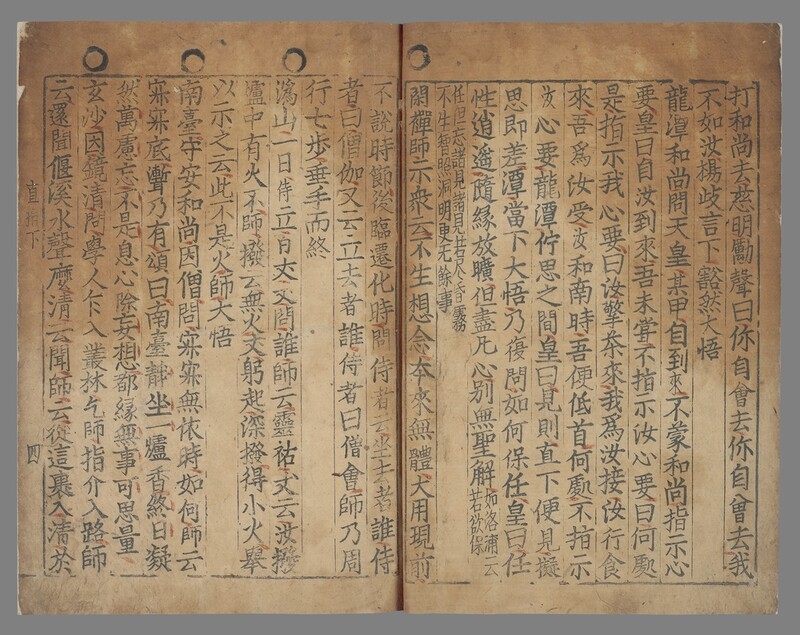 打和尚去慈明勵聲曰你自會去你自會去我
不如汝楊歧言下豁然大悟
龍潭和尚問天皇某甲自到來不蒙和尚指示心
要皇曰自汝到來吾未嘗不指示汝心要曰何處
是指示我心要曰汝擎茶來我爲汝接汝行食
來吾爲汝受汝和南時吾便低首何處不指示
汝心要龍潭佇思之間皇曰見則直下便見擬
思即差潭當下大悟乃復問如何保任皇曰任
性逍遙隨緣放曠但盡凡心別無聖解如洛浦云若欲保
任但忘諸見諸見若尽昏霧不生智照洞明更无餘事
閑禪師示衆云不生想念本來無體大用現前
不說時節後臨遷化時問侍者云坐去者誰侍
者曰僧伽又云立去者誰侍者曰僧會師乃周
行七步垂手而終
潙山一日侍立百丈丈問誰師云靈祐丈云汝撥
爐中有火不師撥云無火丈躬起深撥得小火舉
以示之云此不是火師大悟
南臺守安和尚因僧問寂寂無依時如何師云
寂寂底聻乃有頌曰南臺靜坐一爐香終日凝
然萬慮忘不是息心除妄想都緣無事可思量
玄沙因鏡清問學人乍入叢林乞師指介入路師
云還聞偃溪水聲麽清云聞師云從這裏入清於
直指下
四